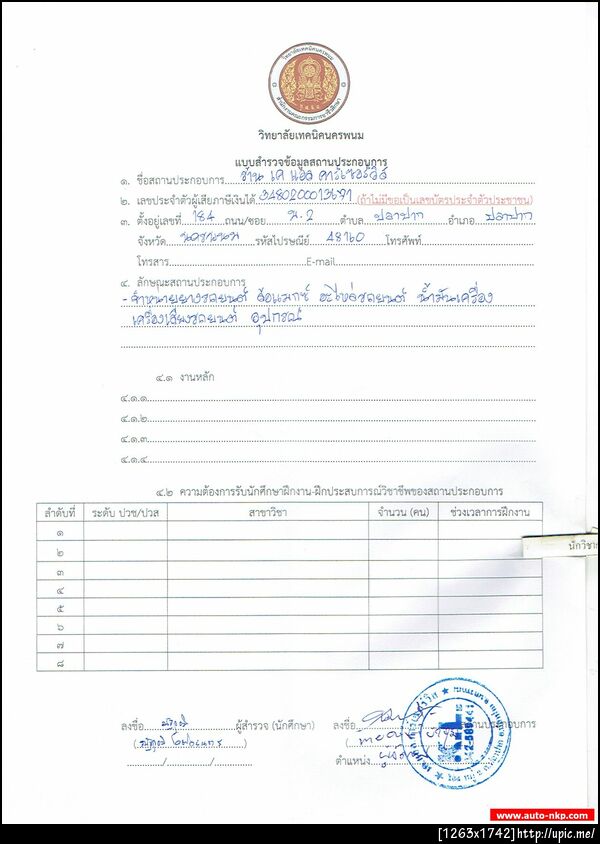 วิทยาลัยเทคนิคนครพนม
สำนักงานคณะกรรมการการอาชีวศึกษา
วิทยาลัยเทคนิคนครพนม
แบบสำรวจข้อมูลสถานประกอบการ
๑. ชื่อสถานประกอบการ ร้าน เค แอล คาร์เซอร์วิส
๒. เลขประจำตัวผู้เสียภาษีเงินได้ (ถ้าไม่มีขอเป็นเลขบัตรประจำตัวประชาชน)
๓. ตั้งอยู่เลขที่ 184 ถนน/ซอย ม.2 ตำบล ปลาปาก อำเภอ ปลาปาก
จังหวัด นครพนม รหัสไปรษณีย์ 48160 โทรศัพท์
โทรสาร E-mail
๔. ลักษณะสถานประกอบการ
- จำหน่ายยางรถยนต์ ล้อแมกซ์ อะไหล่รถยนต์ น้ำมันเครื่อง
เครื่องเสียงรถยนต์ อุปกรณ์
๔.๑ งานหลัก
๔.๑.๑
๔.๑.๒
๔.๑.๓
๔.๑.๔
๔.๒ ความต้องการรับนักศึกษาฝึกงาน-ฝึกประสบการณ์วิชาชีพของสถานประกอบการ
ลำดับที่ ระดับ ปวช/ปวส สาขาวิชา จำนวน (คน) ช่วงเวลาการฝึกงาน
๑
๒
นักวิชา
๓
๔
๕
๖
๗
๘
ลงชื่อ ผู้สำรวจ (นักศึกษา) ลงชื่อ สถานประกอบการ
ตำแหน่ง
www.auto-nkp.com
[1263x1742]http://upic.me/